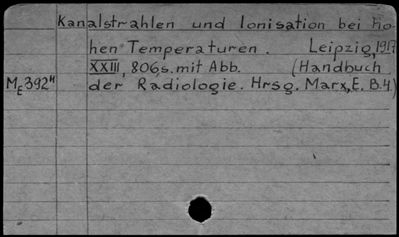 Kanalstrahlen und Ionisation bei ho-
hen Temperaturen. Leipzig, 1917
XXIII, 806 s. mit Abb. (Handbuch
ME 392" der Radiologie. Hrsg. Marx, E. B.4.)